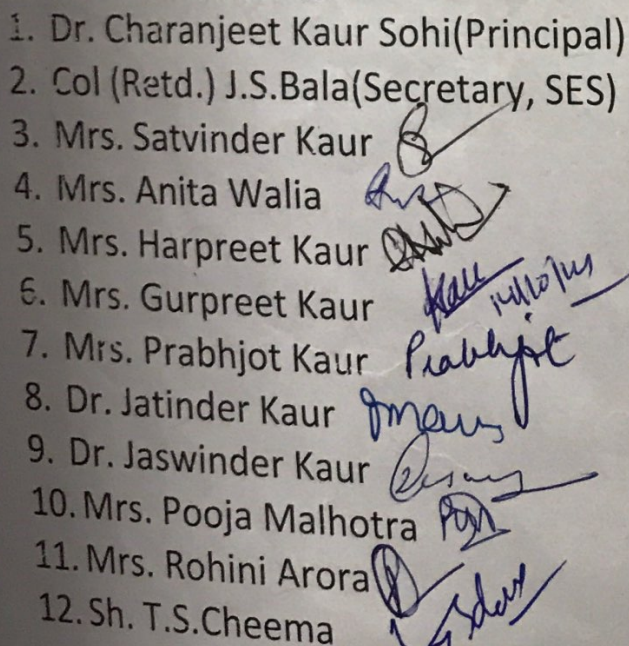 1. Dr. Charanjeet Kaur Sohi(Principal)
2. Col (Retd.) J.S.Bala(Secretary, SES)
3. Mrs. Satvinder Kaur
4. Mrs. Anita Walia
5. Mrs. Harpreet Kaur
6. Mrs. Gurpreet Kaur Kaur
7. Mrs. Prabhjot Kaur Prabhjot
8. Dr. Jatinder Kaur
9. Dr. Jaswinder Kaur
10. Mrs. Pooja Malhotra
11. Mrs. Rohini Arora
12. Sh. T.S.Cheema